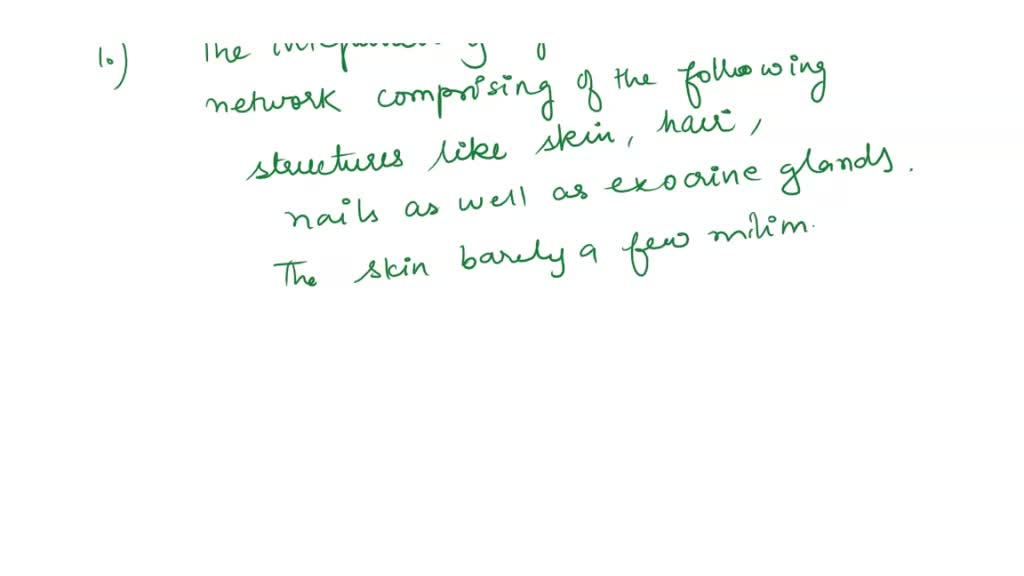 1.) The
network comprising of the following
structures like skin, hair,
nails as well as exocrine glands.
The skin barely a few milim.